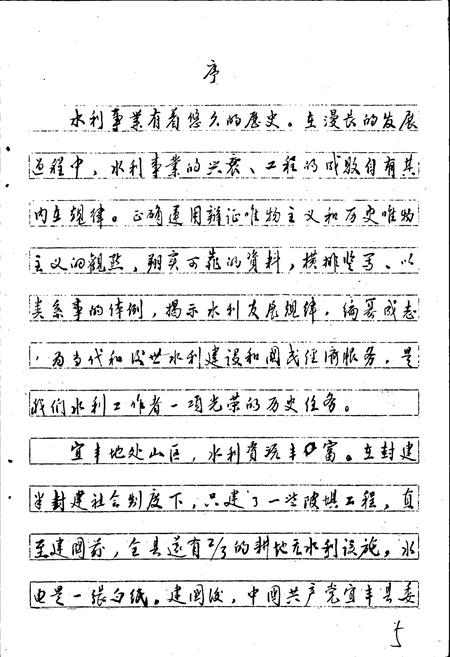 序
水利事業有着悠久的歷史。在漫長的发展
过程中，水利事業的兴衰、工程的成败自有其
内在规律。正确运用辩证唯物主义和历史唯物
主义的观点，翔实可靠的资料，横排竖写、以
类系事的体例，揭示水利发展规律，编纂成志
，为当代和后世水利建设和國民经济服务，是
我们水利工作者一项光荣的历史任务。
宜丰地处山区，水利资源丰富。在封建
半封建社会制度下，只建了一些陂堨工程，直
至建國前，全县还有2/3的耕地无水利设施。水
电是一张白纸。建國后，中國共产党宜丰县委
5